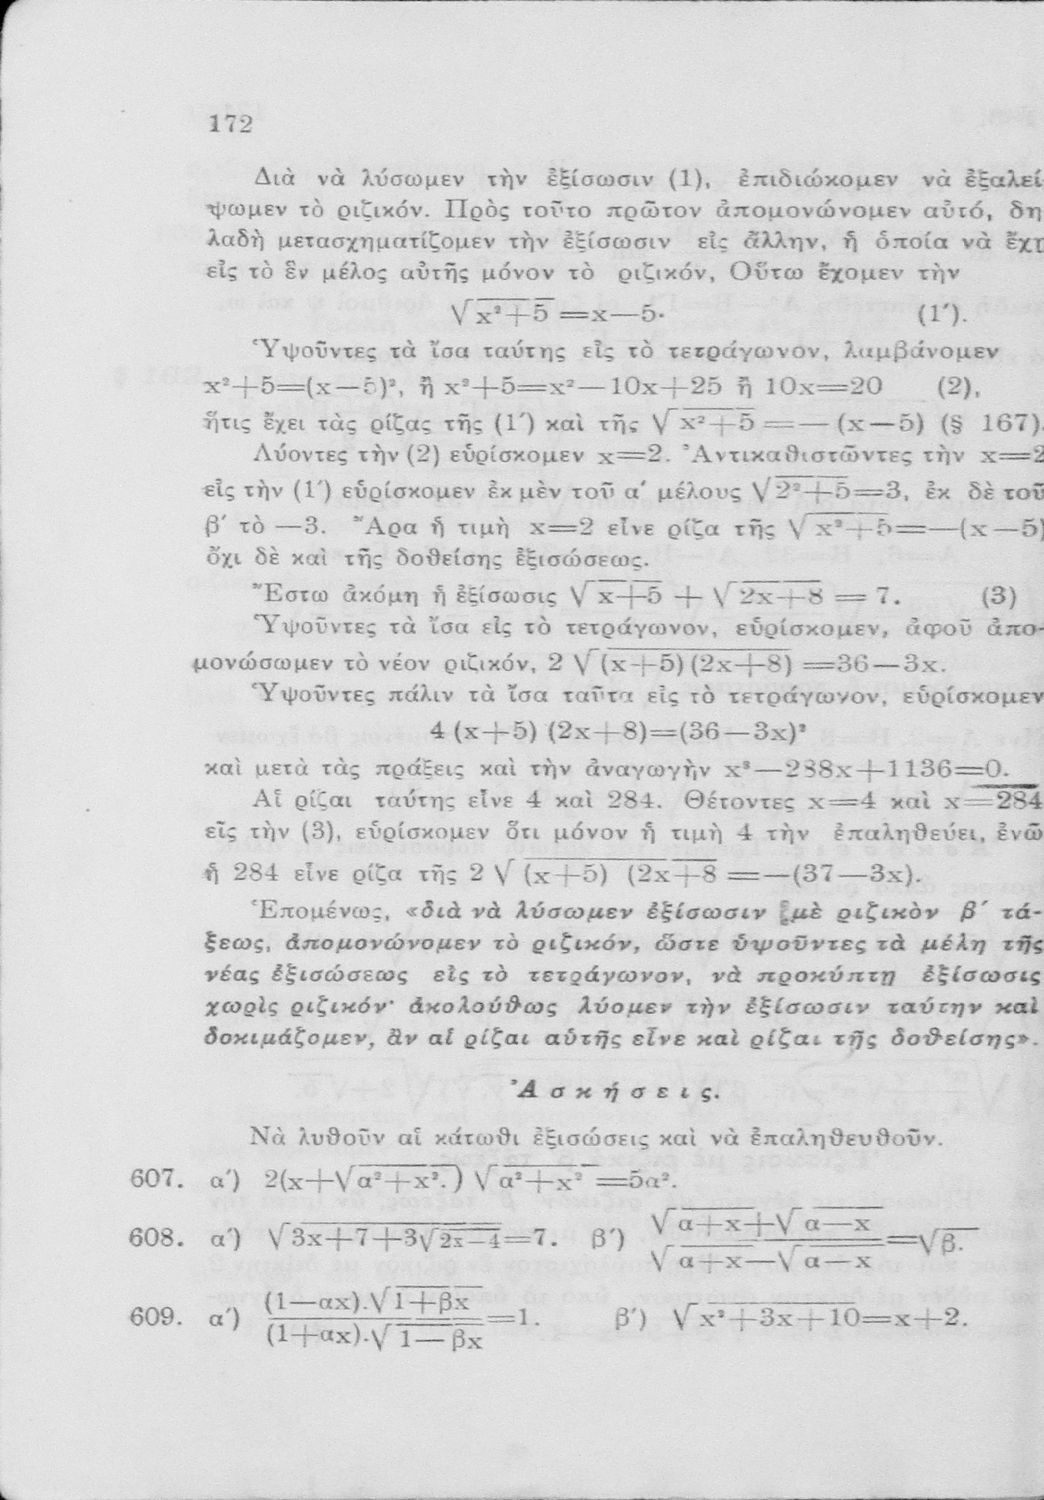 172
Διὰ νὰ λύσωμεν τὴν ἐξίσωσιν (1), ἐπιδιώκομεν νὰ ἐξαλεί-
ψωμεν τὸ ριζικόν. Πρὸς τοῦτο πρῶτον ἀπομονώνομεν αὐτό, δη
λαδὴ μετασχηματίζομεν τὴν ἐξίσωσιν εἰς ἄλλην, ἡ ὁποία νὰ ἔχῃ
εἰς τὸ ἓν μέλος αὐτῆς μόνον τὸ ριζικόν, Οὕτω ἔχομεν τὴν
√x²+5 =x—5· (1′).
Ὑψοῦντες τὰ ἴσα ταύτης εἰς τὸ τετράγωνον, λαμβάνομεν
x²+5=(x—5)², ἢ x²+5=x²—10x+25 ἢ 10x=20 (2),
ἥτις ἔχει τὰς ρίζας τῆς (1′) καὶ τῆς √x²+5 =—(x—5) (§ 167).
Λύοντες τὴν (2) εὑρίσκομεν x=2. Ἀντικαθιστῶντες τὴν x=2
εἰς τὴν (1′) εὑρίσκομεν ἐκ μὲν τοῦ α′ μέλους √2²+5=3, ἐκ δὲ τοῦ
β′ τὸ —3. Ἄρα ἡ τιμὴ x=2 εἶνε ρίζα τῆς √x²+5=—(x—5)
ὄχι δὲ καὶ τῆς δοθείσης ἐξισώσεως.
Ἔστω ἀκόμη ἡ ἐξίσωσις √x+5 + √2x+8 = 7. (3)
Ὑψοῦντες τὰ ἴσα εἰς τὸ τετράγωνον, εὑρίσκομεν, ἀφοῦ ἀπο-
μονώσωμεν τὸ νέον ριζικόν, 2 √(x+5) (2x+8) =36—3x.
Ὑψοῦντες πάλιν τὰ ἴσα ταῦτα εἰς τὸ τετράγωνον, εὑρίσκομεν
4 (x+5) (2x+8)=(36—3x)²
καὶ μετὰ τὰς πράξεις καὶ τὴν ἀναγωγὴν x²—288x+1136=0.
Αἱ ρίζαι ταύτης εἶνε 4 καὶ 284. Θέτοντες x=4 καὶ x=284
εἰς τὴν (3), εὑρίσκομεν ὅτι μόνον ἡ τιμὴ 4 τὴν ἐπαληθεύει, ἐνῶ
ἡ 284 εἶνε ρίζα τῆς 2 √(x+5) (2x+8 =—(37—3x).
Ἑπομένως, «διὰ νὰ λύσωμεν ἐξίσωσιν μὲ ριζικὸν β′ τά-
ξεως, ἀπομονώνομεν τὸ ριζικόν, ὥστε ὑψοῦντες τὰ μέλη τῆς
νέας ἐξισώσεως εἰς τὸ τετράγωνον, νὰ προκύπτῃ ἐξίσωσις
χωρὶς ριζικόν· ἀκολούθως λύομεν τὴν ἐξίσωσιν ταύτην καὶ
δοκιμάζομεν, ἂν αἱ ρίζαι αὐτῆς εἶνε καὶ ρίζαι τῆς δοθείσης».
Ἀσκήσεις.
Νὰ λυθοῦν αἱ κάτωθι ἐξισώσεις καὶ νὰ ἐπαληθευθοῦν.
607. α′) 2(x+√α²+x².) √α²+x² =5α².
608. α′) √3x+7+3√2x—4=7. β′) √α+x+√α—x / √α+x—√α—x =√β.
609. α′) (1—αx).√1+βx / (1+αx).√1—βx =1. β′) √x²+3x+10=x+2.